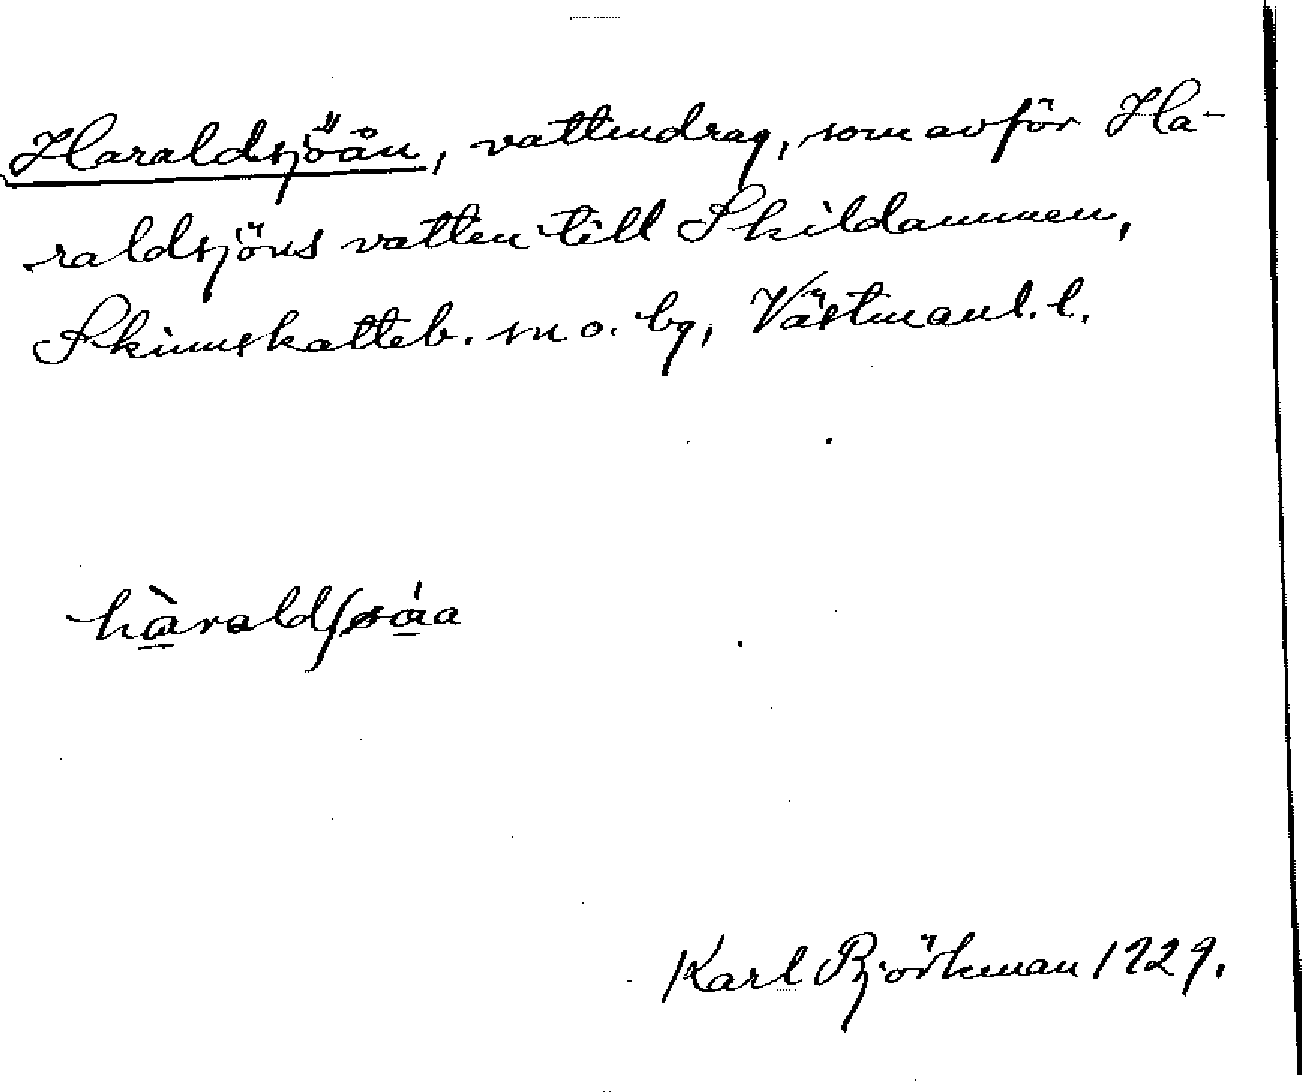 Haraldsjöån, vattendrag, som avför Ha-
raldsjöns vatten till Skildammen,
Skinnskatteb. sn o. by, Västmanl. l.
hàraldʃøáa
Karl Björkman 1929.